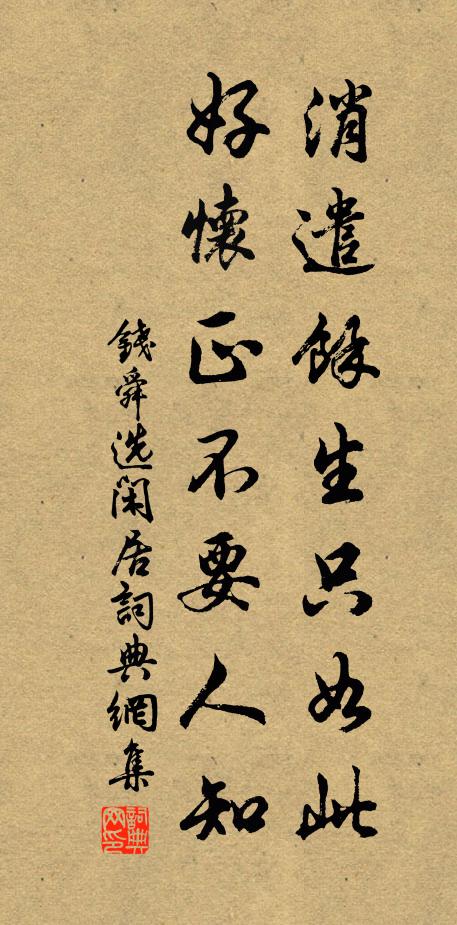 消遣餘生只如此
好懷正不要人知
錢舜选閑居詞典網集
詞典
网印